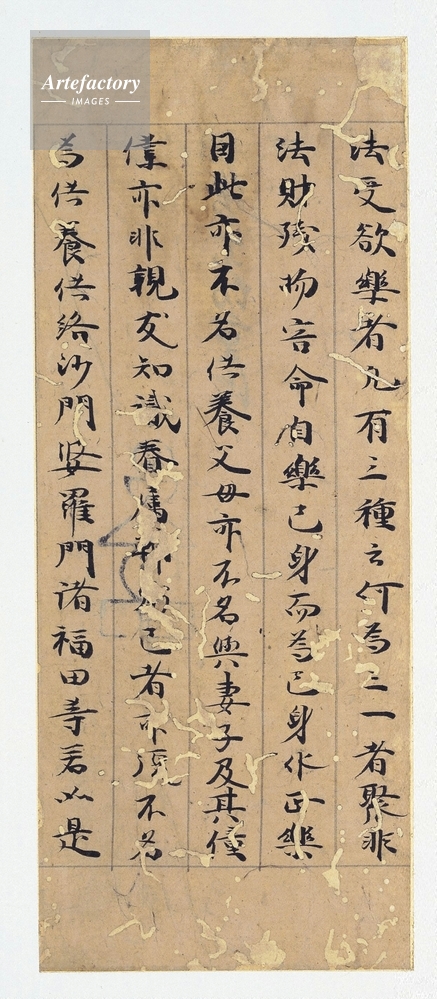 Artefactory
IMAGES
法受欲樂者凡有三種云何為三一者聚非
法財殘物害命自樂己身而為己身作正樂
因此亦不為供養父母亦不名與妻子及其僮
僕亦非親友知識眷属 己者亦須不名
為供養供給沙門婆羅門諸福田等若如是